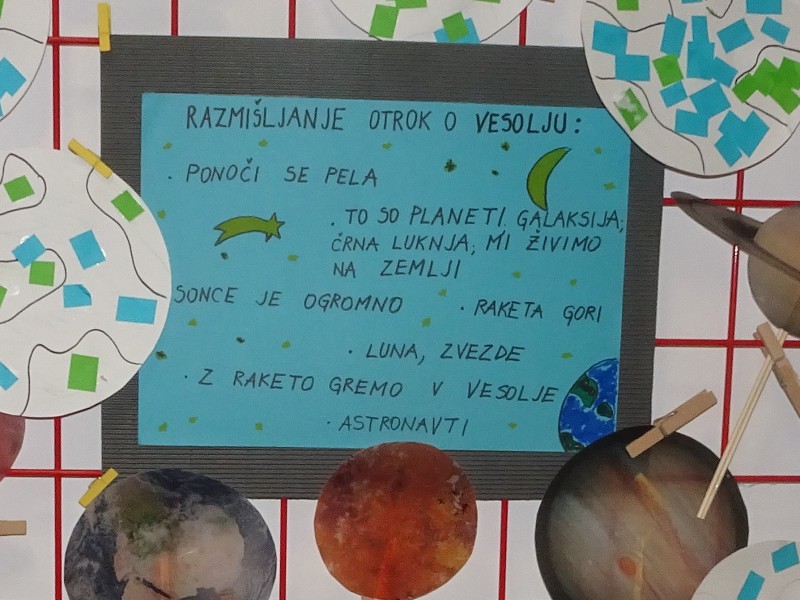 RAZMIŠLJANJE OTROK O VESOLJU:
· PONOČI SE PELA
· TO SO PLANETI, GALAKSIJA,
ČRNA LUKNJA, MI ŽIVIMO
NA ZEMLJI
SONCE JE OGROMNO
· RAKETA GORI
· LUNA, ZVEZDE
· Z RAKETO GREMO V VESOLJE
· ASTRONAVTI